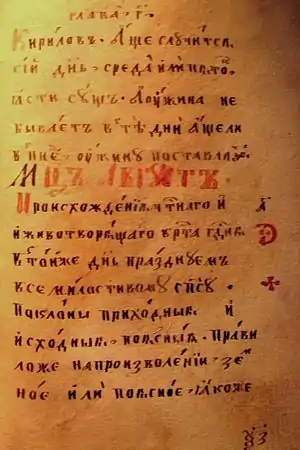 глава г҃
Кириловъ. Аще случится.
сїй дн҃ь. среда или пѧто
Аоужина не
бываетъ в тѣ дни Ащели
в пн҃е. оужину поставлѧ
Мц҃ъ Август ъ
Происхожденїѧ чтⷭ҇наго и
и животворѧщаго крⷭ҇та гдⷭ҇нѧ.
В тоиже дн҃ь празднуемъ
всемилⷭ҇тивому спⷭ҇су
поклоны приходныѧ. И
исходныѧ. поѧсныѧ. Прави
ло же на произволенїи. зе
ное или поѧсное. ꙗкоже